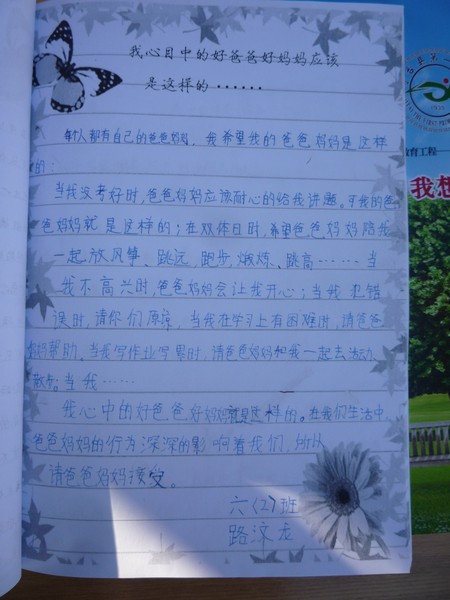 我心目中的好爸爸好妈妈应该
是这样的······
每人都有自己的爸爸妈妈，我希望我的爸爸妈妈是这样
的：
当我没考好时，爸爸妈妈应该耐心的给我讲题。可我的爸
爸妈妈就是这样的；在双休日时，希望爸爸妈妈陪我
一起放风筝、跳远、跑步、锻炼、跳高……当
我不高兴时，爸爸妈妈会让我开心；当我犯错
误时，请你们原谅，当我在学习上有困难时，请爸爸
妈妈帮助。当我写作业写累时，请爸爸妈妈和我一起去活动、
散步。当我……
我心中的好爸爸好妈妈就是这样的。在我们生活中，
爸爸妈妈的行为，深深的影响着我们，
请爸爸妈妈接受。
六〈2〉班
路
教育工程
我想